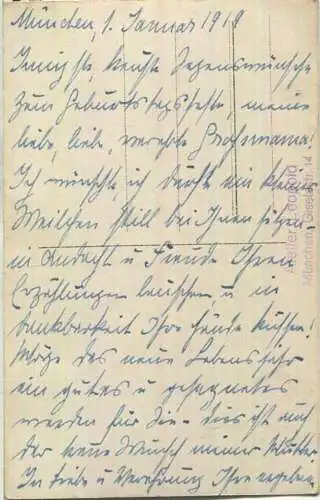 München, 1. Januar 1919
Innigste, heißste Segenswünsche
zum Geburtstagsfeste, meine
liebe, liebe, verehrte Grossmama!
Ich wünschte, ich dürfte ein kleines
Weilchen still bei Ihnen sitzen,
in Andacht u Freude Ihren
Erzählungen lauschen u in
Dankbarkeit Ihre Hände küssen!
Möge das neue Lebensjahr
ein gutes u gesegnetes
werden für Sie – dies ist auch
der Wunsch meiner Mutter.
In Liebe u Verehrung Ihre ergeben
Atelier
München,